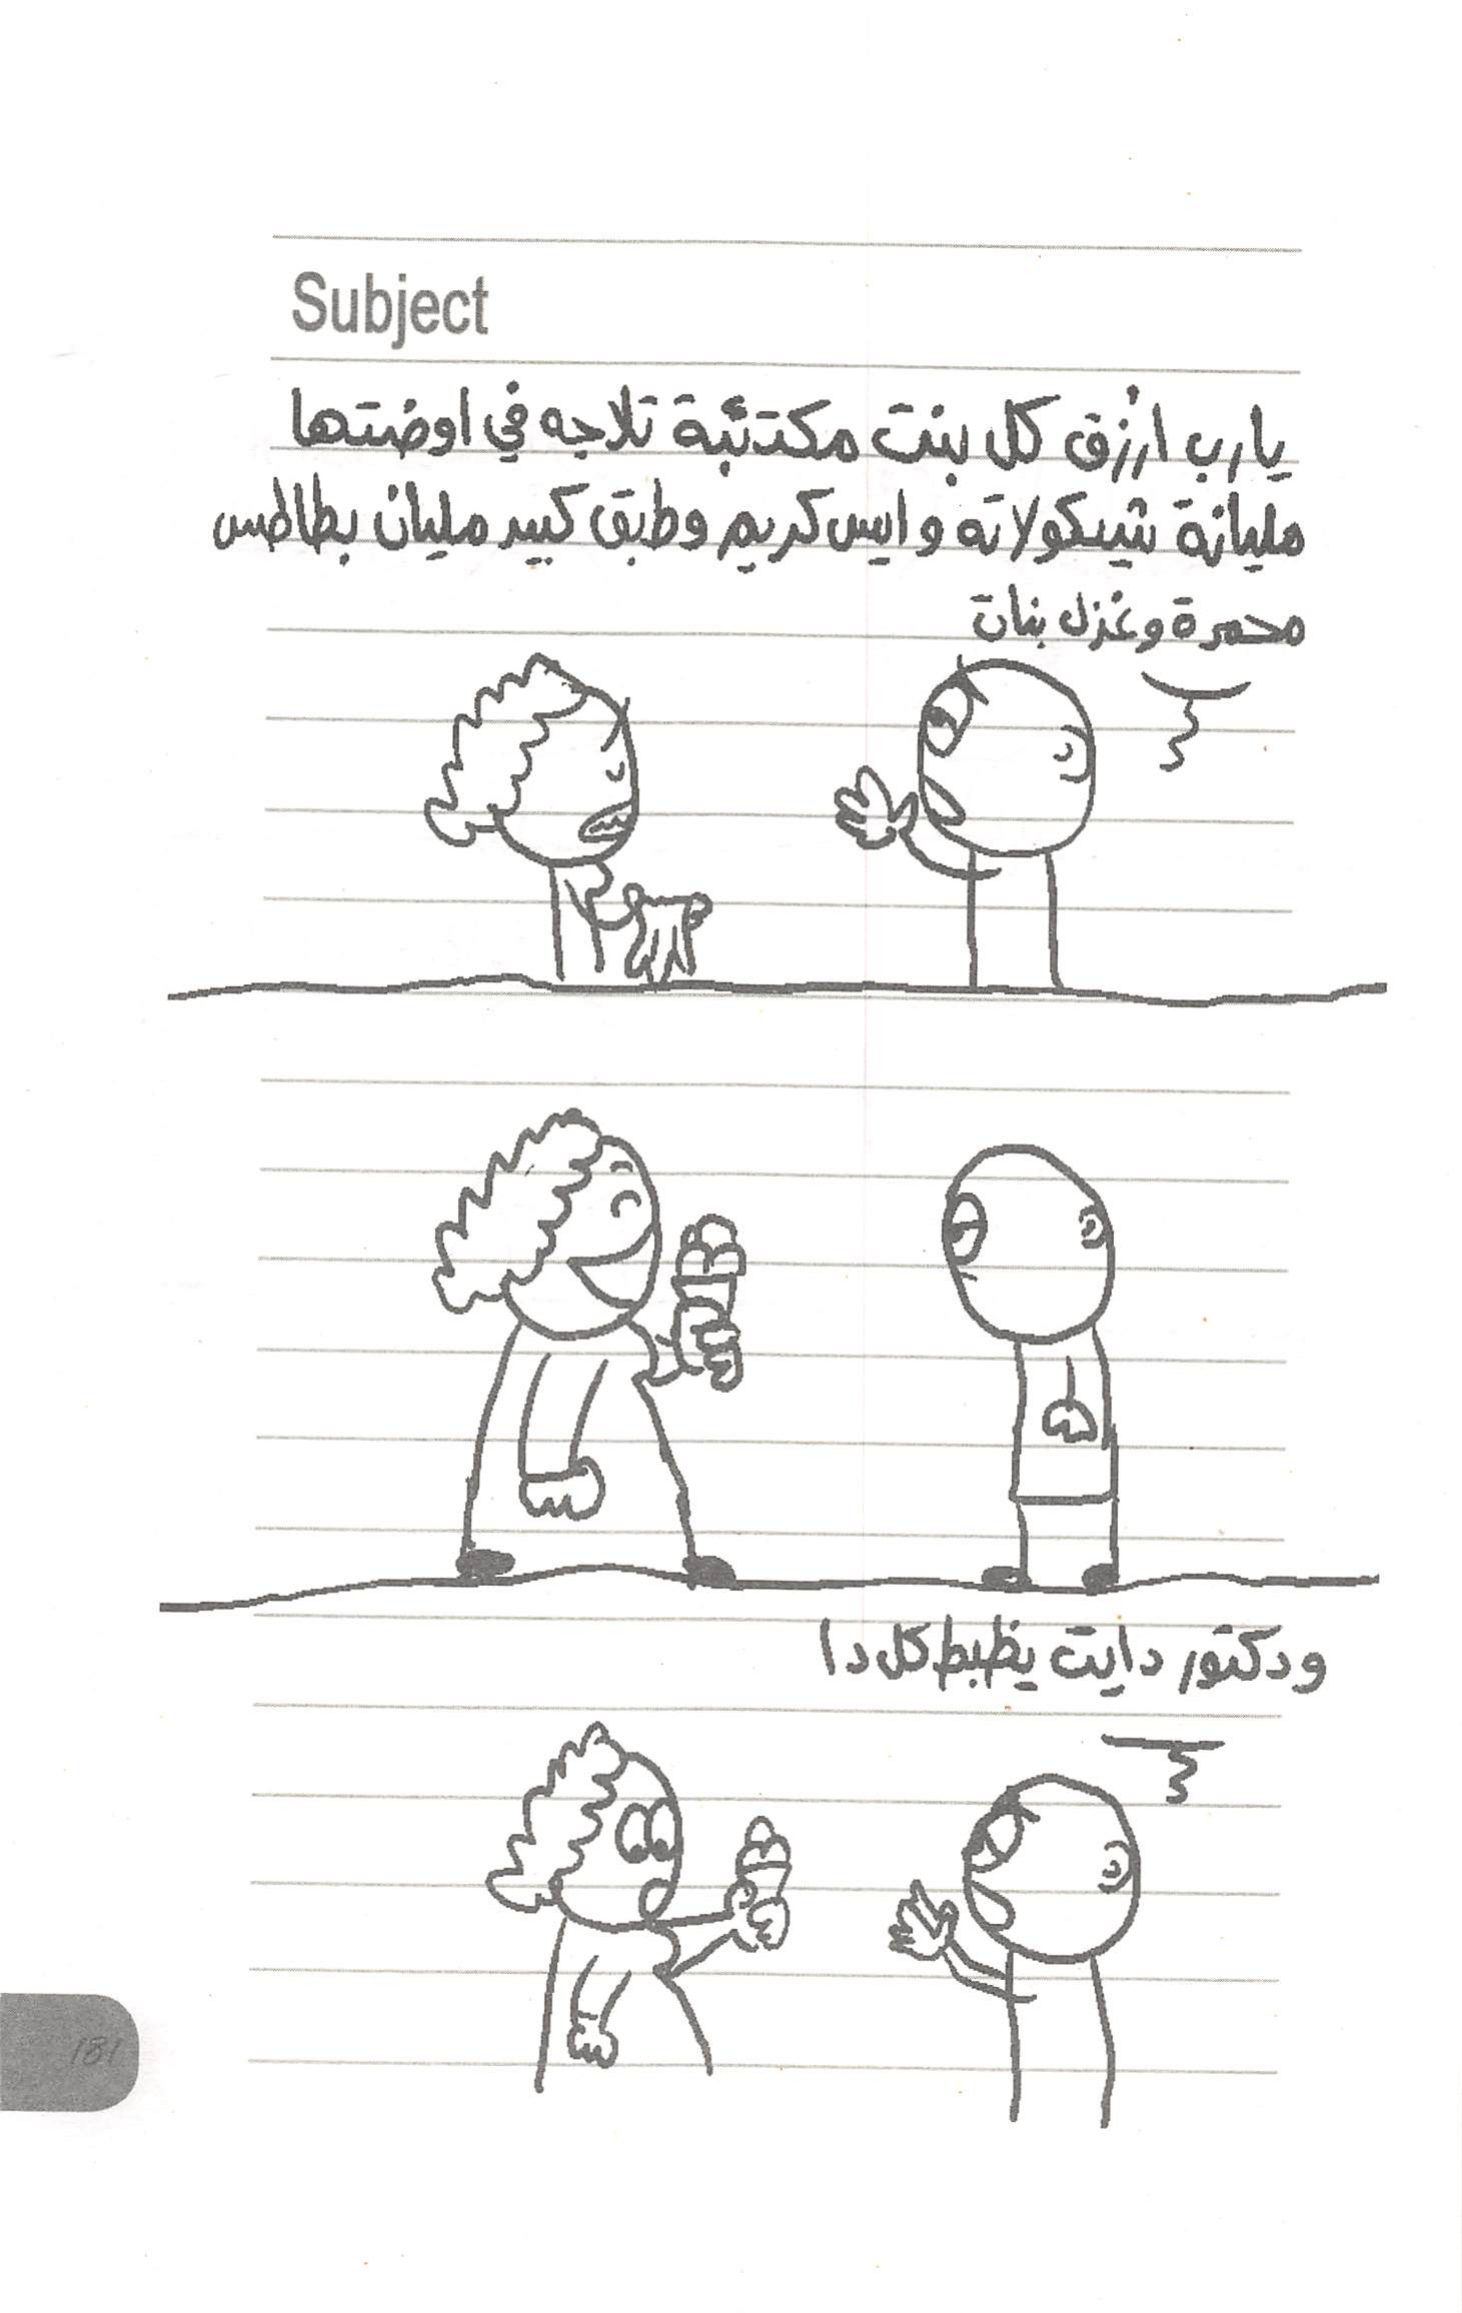 Subject
يارب ارزق كل بنت مكتئبة تلاجه في اوضتها
مليانة شيكولاته وايس كريم وطبق كبير مليان بطاطس
محمرة وغزل بنات
ودكتور دايت يظبط كل دا
181